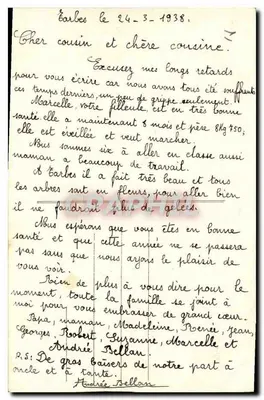 Tarbes le 24-3-1938.
Cher cousin et chère cousine.
Excusez mes longs retards
pour vous écrire car nous avons tous été souffrants
ces temps derniers, un peu de grippe seulement.
Marcelle, votre filleule est en très bonne
santé elle a maintenant 8 mois et pèse 8kg 750,
elle est éveillée et veut marcher.
Nous sommes six à aller en classe aussi
maman a beaucoup de travail.
A Tarbes il a fait très beau et tous
les arbres sont en fleurs, pour aller bien
il ne faudrait plus de gelées.
Nous espérons que vous êtes en bonne
santé et que cette année ne se passera
pas sans que nous ayons le plaisir de
vous voir.
Rien de plus à vous dire pour le
moment, toute la famille se joint à
moi pour vous embrasser de grand cœur.
Papa, maman, Madeleine, Renée, Jean,
Georges, Robert, Suzanne, Marcelle et
Andrée Bellan.
P.S: De gros baisers de notre part à
oncle et à tante.
Andrée Bellan